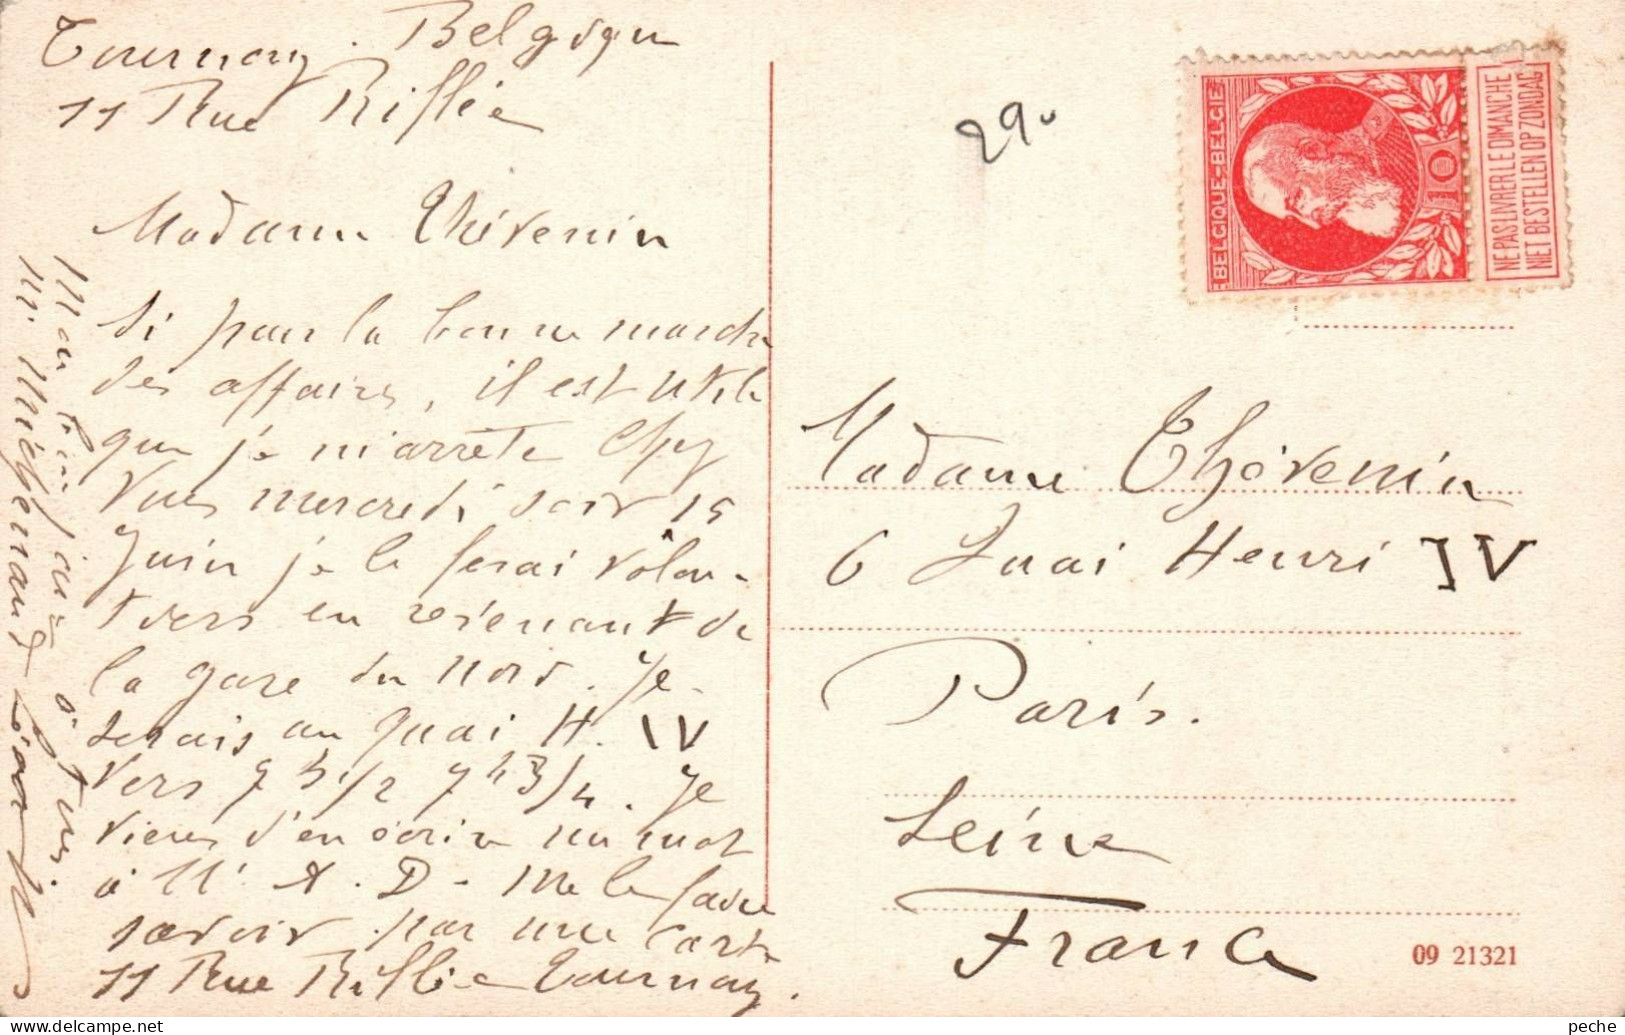 Tournay. Belgique
11 Rue Rifflé
Madame Thévenin
Si pour la bonne marche
des affaires, il est utile
que je m'arrête chez
vous mercredi soir 15
Juin je le ferai volon-
tiers en revenant de
la gare du Nord. Je
serais au quai H. IV
vers 7 h 1/2 7 h 3/4. Je
viens d'en écrire un mot
à M. A. D - Me le faire
savoir par une carte
11 Rue Rifflé Tournay.
Mon bonjour à tous
29
BELGIQUE-BELGIË
10
NE PAS LIVRER LE DIMANCHE
NIET BESTELLEN OP ZONDAG
Madame Thévenin
6 Quai Henri IV
Paris.
Seine
France
09 21321
delcampe.net
peche